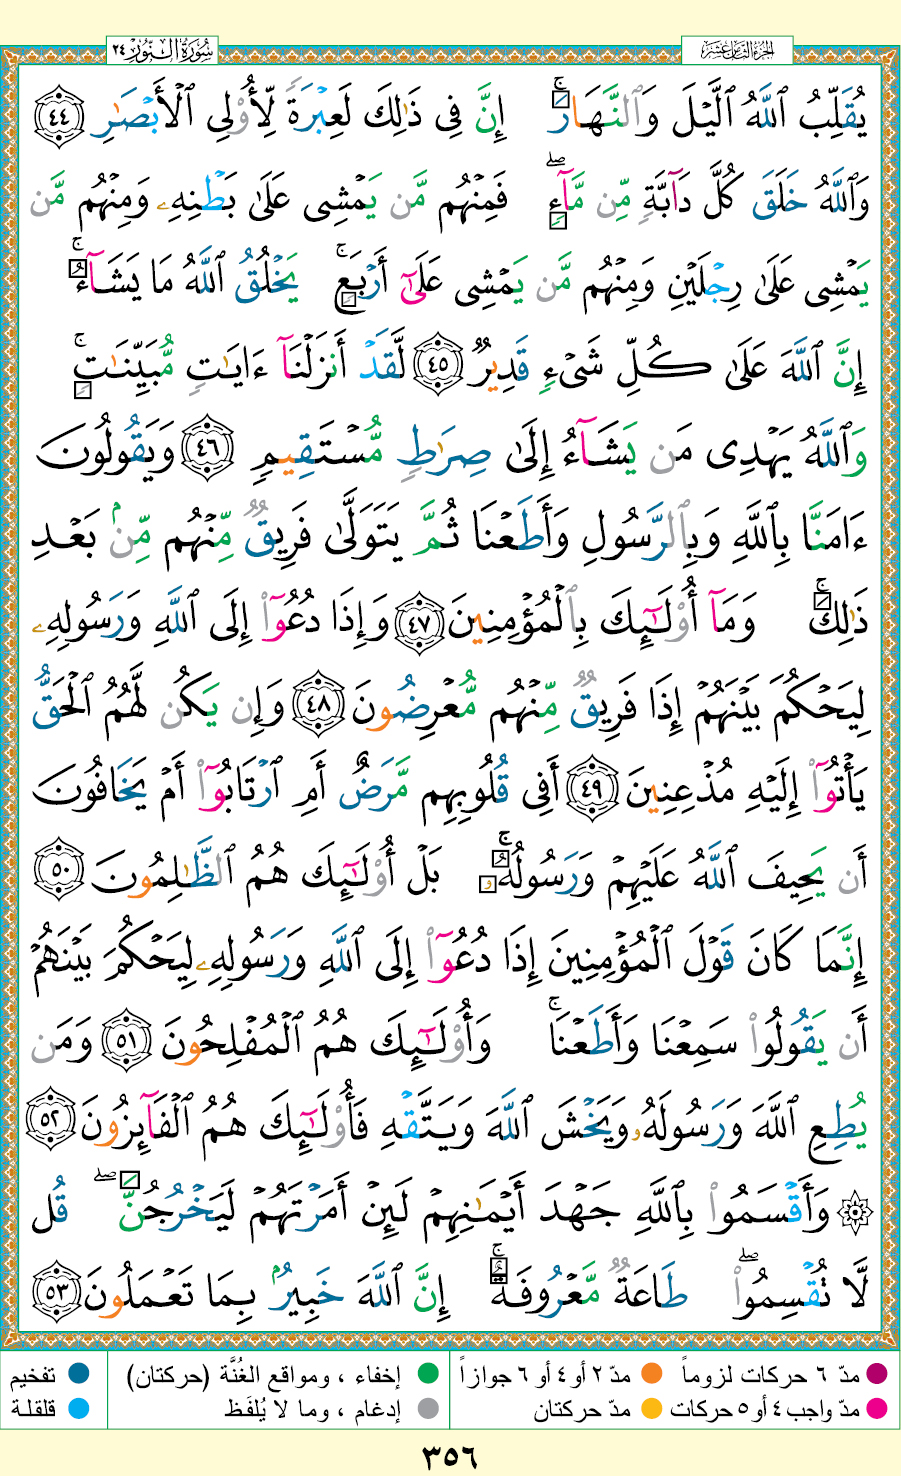 الجزء الثامن عشر
سُورَةُ النُّورِ ٢٤
يُقَلِّبُ ٱللَّهُ ٱلَّيْلَ وَٱلنَّهَارَۚ إِنَّ فِى ذَٰلِكَ لَعِبْرَةً لِّأُو۟لِى ٱلْأَبْصَٰرِ ٤٤
وَٱللَّهُ خَلَقَ كُلَّ دَآبَّةٍ مِّن مَّآءٍۖ فَمِنْهُم مَّن يَمْشِى عَلَىٰ بَطْنِهِۦ وَمِنْهُم مَّن
يَمْشِى عَلَىٰ رِجْلَيْنِ وَمِنْهُم مَّن يَمْشِى عَلَىٰٓ أَرْبَعٍۚ يَخْلُقُ ٱللَّهُ مَا يَشَآءُۚ
إِنَّ ٱللَّهَ عَلَىٰ كُلِّ شَىْءٍ قَدِيرٌ ٤٥ لَّقَدْ أَنزَلْنَآ ءَايَٰتٍ مُّبَيِّنَٰتٍۚ
وَٱللَّهُ يَهْدِى مَن يَشَآءُ إِلَىٰ صِرَٰطٍ مُّسْتَقِيمٍ ٤٦ وَيَقُولُونَ
ءَامَنَّا بِٱللَّهِ وَبِٱلرَّسُولِ وَأَطَعْنَا ثُمَّ يَتَوَلَّىٰ فَرِيقٌ مِّنْهُم مِّنۢ بَعْدِ
ذَٰلِكَۚ وَمَآ أُو۟لَٰٓئِكَ بِٱلْمُؤْمِنِينَ ٤٧ وَإِذَا دُعُوٓا۟ إِلَى ٱللَّهِ وَرَسُولِهِۦ
لِيَحْكُمَ بَيْنَهُمْ إِذَا فَرِيقٌ مِّنْهُم مُّعْرِضُونَ ٤٨ وَإِن يَكُن لَّهُمُ ٱلْحَقُّ
يَأْتُوٓا۟ إِلَيْهِ مُذْعِنِينَ ٤٩ أَفِى قُلُوبِهِم مَّرَضٌ أَمِ ٱرْتَابُوٓا۟ أَمْ يَخَافُونَ
أَن يَحِيفَ ٱللَّهُ عَلَيْهِمْ وَرَسُولُهُۥۚ بَلْ أُو۟لَٰٓئِكَ هُمُ ٱلظَّٰلِمُونَ ٥٠
إِنَّمَا كَانَ قَوْلَ ٱلْمُؤْمِنِينَ إِذَا دُعُوٓا۟ إِلَى ٱللَّهِ وَرَسُولِهِۦ لِيَحْكُمَ بَيْنَهُمْ
أَن يَقُولُوا۟ سَمِعْنَا وَأَطَعْنَاۚ وَأُو۟لَٰٓئِكَ هُمُ ٱلْمُفْلِحُونَ ٥١ وَمَن
يُطِعِ ٱللَّهَ وَرَسُولَهُۥ وَيَخْشَ ٱللَّهَ وَيَتَّقْهِ فَأُو۟لَٰٓئِكَ هُمُ ٱلْفَآئِزُونَ ٥٢
۞ وَأَقْسَمُوا۟ بِٱللَّهِ جَهْدَ أَيْمَٰنِهِمْ لَئِنْ أَمَرْتَهُمْ لَيَخْرُجُنَّۖ قُل
لَّا تُقْسِمُوا۟ۖ طَاعَةٌ مَّعْرُوفَةٌۚ إِنَّ ٱللَّهَ خَبِيرٌۢ بِمَا تَعْمَلُونَ ٥٣
مدّ ٦ حركات لزوماً مدّ ٢ أو ٤ أو ٦ جوازاً إخفاء ، ومواقع الغُنَّة (حركتان) تفخيم
مدّ واجب ٤ أو ٥ حركات مدّ حركتان إدغام ، وما لا يُلفَظ قلقلة
٣٥٦